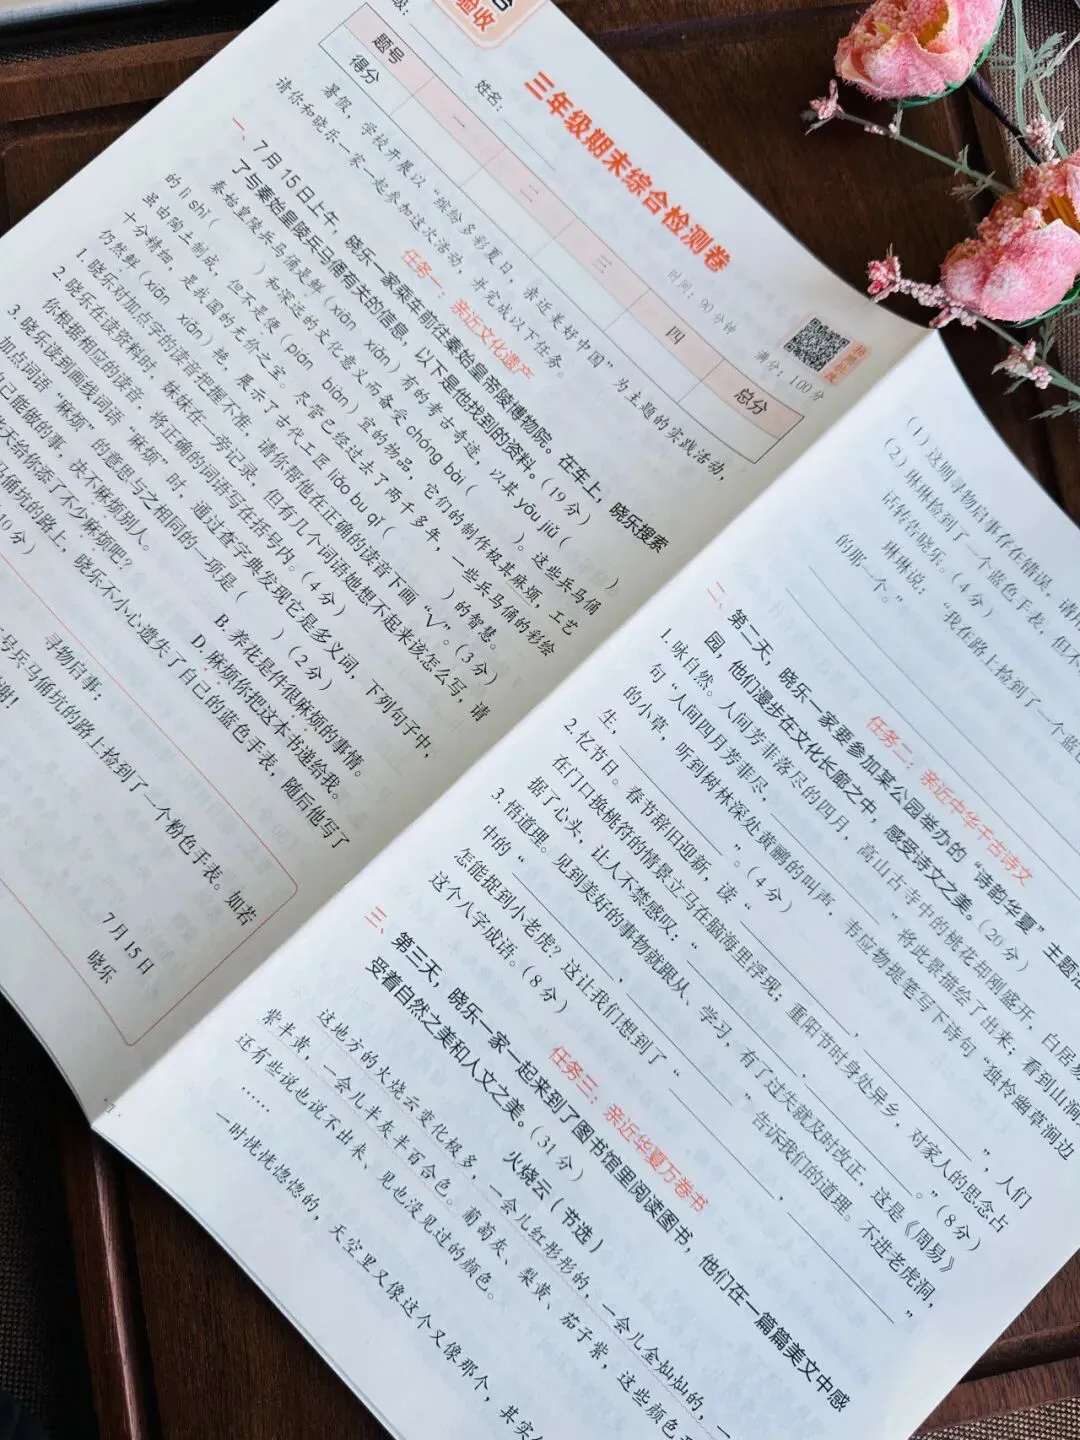 验收
三年级期末综合检测卷
姓名:
时间:90分钟
满分:100分
题号 一 二 三 四 总分
得分
暑假,学校开展以“缤纷多彩夏日,亲近美好中国”为主题的实践活动,
请你和晓乐一家一起参加这次活动,并完成以下任务。
任务一:亲近文化遗产
一、7月15日上午,晓乐一家乘车前往秦始皇帝陵博物院。在车上,晓乐搜索
了与秦始皇陵兵马俑有关的信息,以下是他找到的资料。(19分)
秦始皇陵兵马俑是鲜(xiān xiǎn)有的考古奇迹,以其 yōu jiǔ( )
的 lì shǐ( )和深远的文化意义而备受 chóng bài( )。这些兵马俑
虽由陶土制成,但不是便(pián biàn)宜的物品,它们的制作极其麻烦,工艺
十分精细,是我国的无价之宝。尽管已经过去了两千多年,一些兵马俑的彩绘
仍然鲜(xiān xiǎn)艳,展示了古代工匠 liǎo bu qǐ( )的智慧。
1. 晓乐对加点字的读音把握不准,请你帮他在正确的读音下画“√”。(3分)
2. 晓乐在读资料时,妹妹在一旁记录,但有几个词语她想不起来该怎么写,请
你根据相应的读音,将正确的词语写在括号内。(4分)
3. 晓乐读到画线词语“麻烦”时,通过查字典发现它是多义词,下列句子中,
加点词语“麻烦”的意思与之相同的一项是( )(2分)
己能做的事,决不麻烦别人。
B. 养花是件很麻烦的事情。
天给你添了不少麻烦吧?
D. 麻烦你把这本书递给我。
马俑坑的路上,晓乐不小心遗失了自己的蓝色手表,随后他写了
10分)
寻物启事:
号兵马俑坑的路上捡到了一个粉色手表。如若
谢!
7月15日
晓乐
(1)这则寻物启事存在错误,请
(2)琳琳捡到了一个蓝色手表,但
话转告晓乐。(4分)
琳琳说:“我在路上捡到了一个蓝
的那一个。”
任务二:亲近中华千古诗文
二、第二天,晓乐一家要参加某公园举办的“诗韵华夏”主题
园,他们漫步在文化长廊之中,感受诗文之美。(20分)
1. 咏自然。人间芳菲落尽的四月,高山古寺中的桃花却刚盛开,白居易
句“人间四月芳菲尽, ”将此景描绘了出来;看到山涧
的小草,听到树林深处黄鹂的叫声,韦应物提笔写下诗句“独怜幽草涧边
生, 。”(4分)
2. 忆节日。春节辞旧迎新,读“ , ”,人们
在门口换桃符的情景立马在脑海里浮现;重阳节时身处异乡,对家人的思念占
据了心头,让人不禁感叹:“ , 。”(8分)
3. 悟道理。见到美好的事物就跟从、学习,有了过失就及时改正,这是《周易》
中的“ , ”告诉我们的道理。不进老虎洞,
怎能捉到小老虎?这让我们想到了“ , ”
这个八字成语。(8分)
任务三:亲近华夏万卷书
三、第三天,晓乐一家一起来到了图书馆里阅读图书,他们在一篇篇美文中感
受着自然之美和人文之美。(31分)
火烧云(节选)
这地方的火烧云变化极多,一会儿红彤彤的,一会儿金灿灿的,一
紫半黄,一会儿半灰半百合色。葡萄灰、梨黄、茄子紫,这些颜色
还有些说也说不出来、见也没见过的颜色。
……
一时恍恍惚惚的,天空里又像这个又像那个,其实